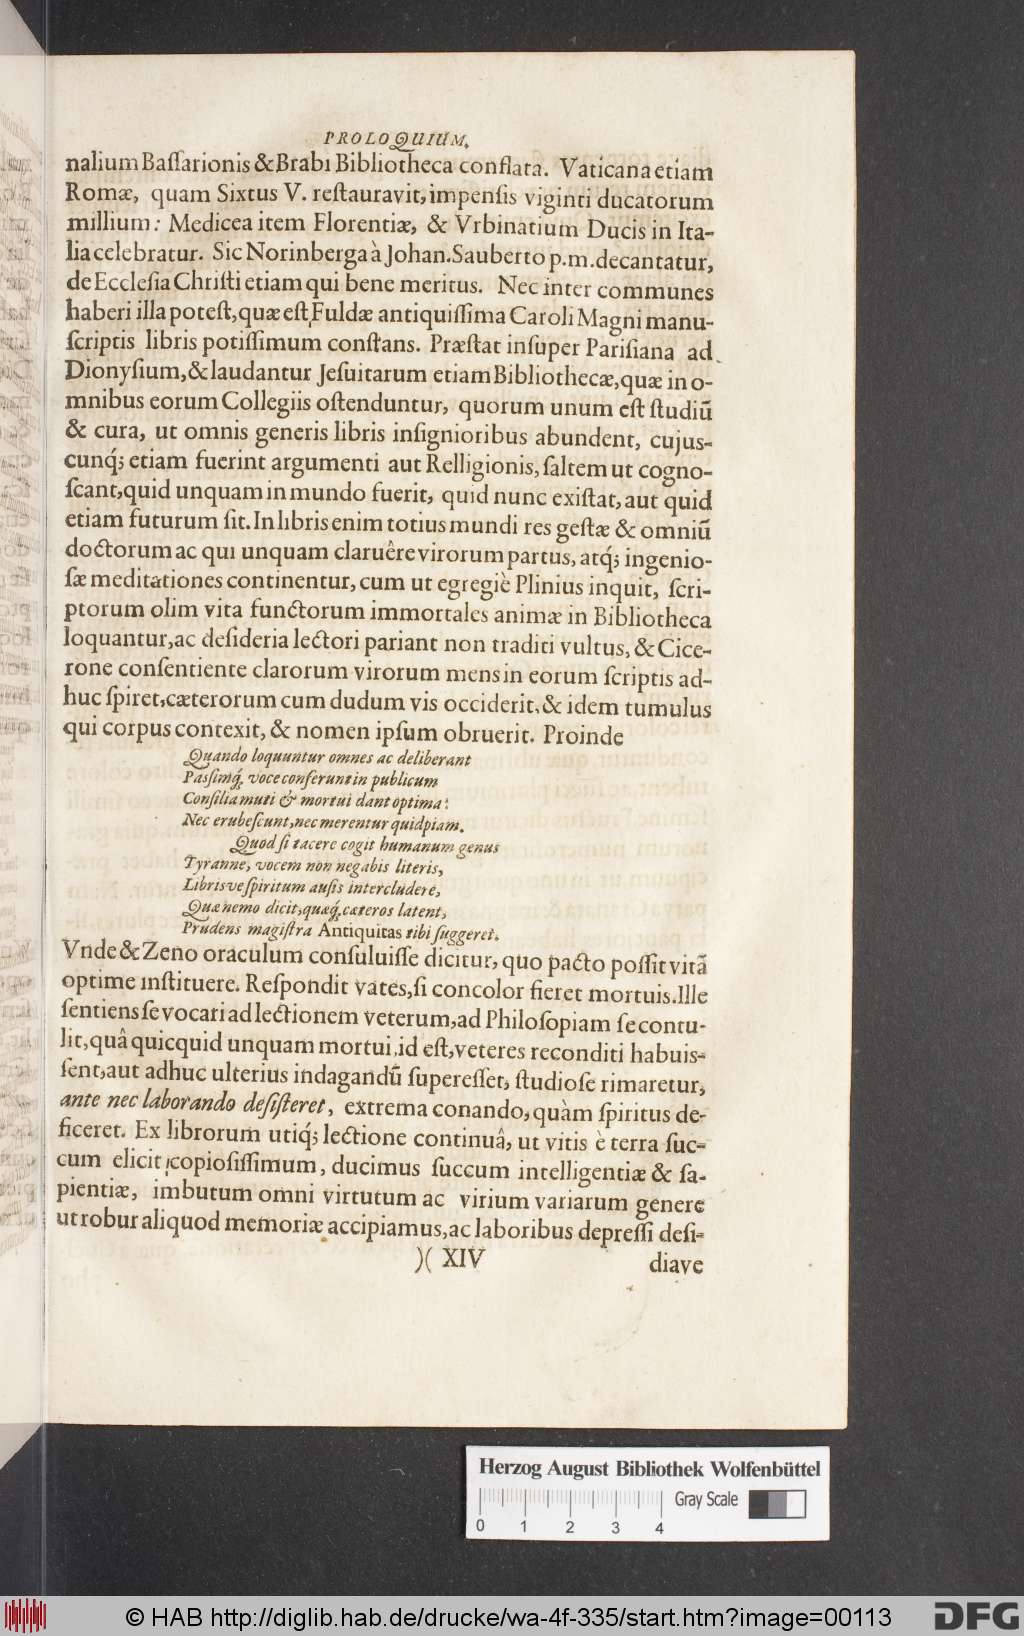 PROLOQUIUM.
nalium Baſſarionis & Brabi Bibliotheca conflata. Vaticana etiam
Romæ, quam Sixtus V. reſtauravit, impenſis viginti ducatorum
millium: Medicea item Florentiæ, & Vrbinatium Ducis in Ita-
lia celebratur. Sic Norinberga à Johan. Sauberto p. m. decantatur,
de Eccleſia Chriſti etiam qui bene meritus. Nec inter communes
haberi illa poteſt, quæ eſt Fuldæ antiquiſſima Caroli Magni manu-
ſcriptis libris potiſſimum conſtans. Præſtat inſuper Pariſiana ad
Dionyſium, & laudantur Jeſuitarum etiam Bibliothecæ, quæ in o-
mnibus eorum Collegiis oſtenduntur, quorum unum eſt ſtudiū
& cura, ut omnis generis libris inſignioribus abundent, cujus-
cunq́; etiam fuerint argumenti aut Relligionis, ſaltem ut cogno-
ſcant, quid unquam in mundo fuerit, quid nunc exiſtat, aut quid
etiam futurum ſit. In libris enim totius mundi res geſtæ & omniū
doctorum ac qui unquam claruêre virorum partus, atq́; ingenio-
ſæ meditationes continentur, cum ut egregiè Plinius inquit, ſcri-
ptorum olim vita functorum immortales animæ in Bibliotheca
loquantur, ac deſideria lectori pariant non traditi vultus, & Cice-
rone conſentiente clarorum virorum mens in eorum ſcriptis ad-
huc ſpiret, cæterorum cum dudum vis occiderit, & idem tumulus
qui corpus contexit, & nomen ipſum obruerit. Proinde
Quando loquuntur omnes ac deliberant
Paſſimq́; voce conferunt in publicum
Conſilia muti & mortui dant optima:
Nec erubeſcunt, nec merentur quidpiam.
Quod ſi tacere cogit humanum genus
Tyranne, vocem non negabis literis,
Librisve ſpiritum auſis intercludere,
Quæ nemo dicit, quæq́; cæteros latent,
Prudens magiſtra Antiquitas tibi ſuggeret.
Vnde & Zeno oraculum conſuluiſſe dicitur, quo pacto poſſit vitã
optime inſtituere. Reſpondit vates, ſi concolor fieret mortuis. Ille
ſentiens ſe vocari ad lectionem veterum, ad Philoſopiam ſe contu-
lit, quâ quicquid unquam mortui, id eſt, veteres reconditi habuis-
ſent, aut adhuc ulterius indagandū ſupereſſet, ſtudioſe rimaretur,
ante nec laborando deſiſteret, extrema conando, quàm ſpiritus de-
ficeret. Ex librorum utiq́; lectione continuâ, ut vitis è terra ſuc-
cum elicit copioſiſſimum, ducimus ſuccum intelligentiæ & ſa-
pientiæ, imbutum omni virtutum ac virium variarum genere
ut robur aliquod memoriæ accipiamus, ac laboribus depreſſi deſi-
)( XIV
diave
Herzog August Bibliothek Wolfenbüttel
Gray Scale
0 1 2 3 4
© HAB http://diglib.hab.de/drucke/wa-4f-335/start.htm?image=00113
DFG